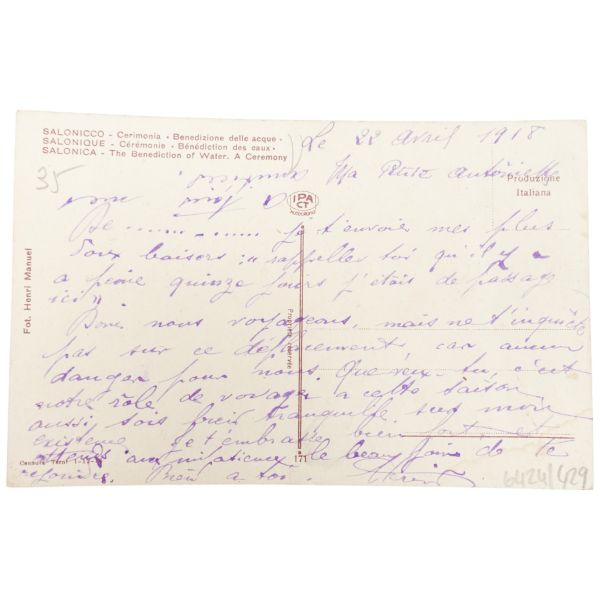 SALONICCO - Cerimonia - Benedizione delle acque -
SALONIQUE - Cérémonie - Bénédiction des eaux -
SALONICA - The Benediction of Water. A Ceremony
Le 22 Avril 1918
35
Ma Petite Antoinette
Produzione
Italiana
IPA
CT
AUTOCROMO
De .......... je t'envoie mes plus
doux baisers: "rappelles toi qu'il y
a peine quinze jours j'étais de passage
ici"
Donc nous voyageons, mais ne t'inquiète
pas sur ce déplacement car aucun
danger pour nous Que veux-tu, c'est
notre rôle de voyager a cette saison
aussi sois bien tranquille sur mon
existence Je t'embrasse bien fort, et
attends impatiemment le beau jour de te
rejoindre. Bien a toi.
Fot. Henri Manuel
Proprietà riservata
Censura Terni
171
6424/429